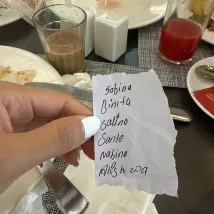 Sabina
Binita
Salina
Sante
Nabina